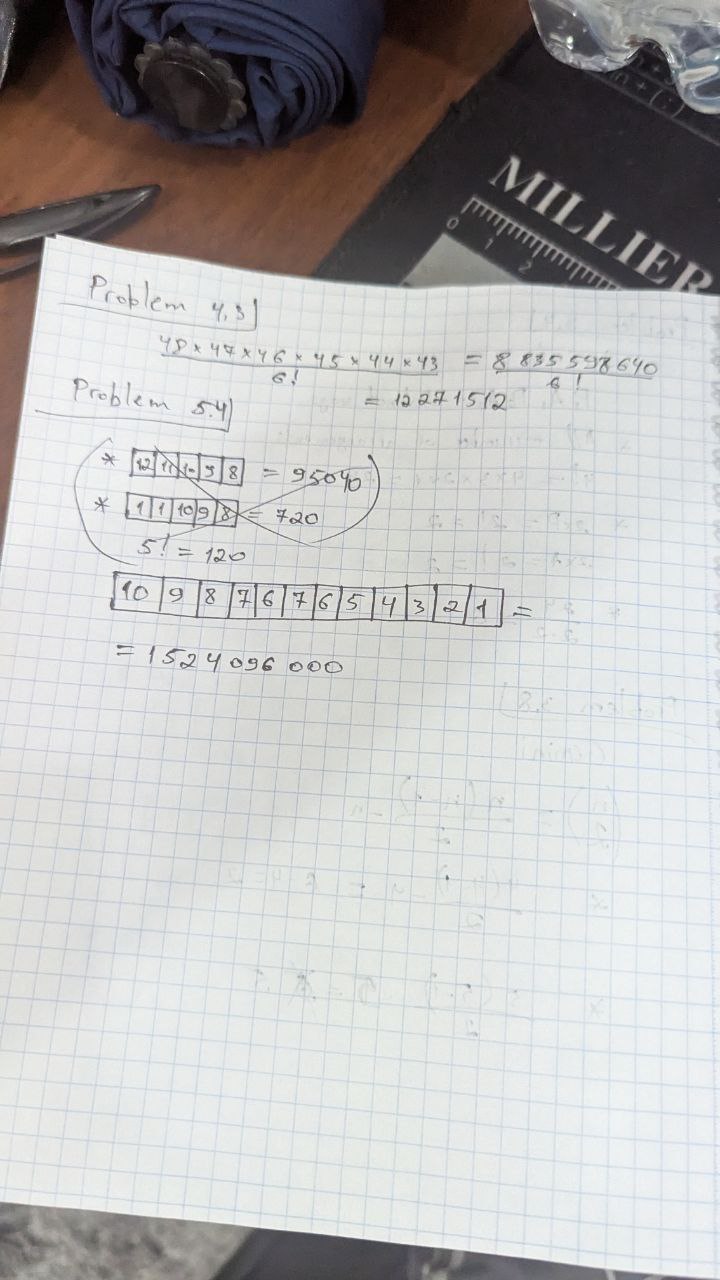 MILLIER
0 1 2
Problem 4,3)
48 × 47 × 46 × 45 × 44 × 43 = 8 835 598 640
6! 6!
= 12271512
Problem 5.4)
* 12 11 10 9 8 = 95040
* 1 1 10 9 8 = 720
5! = 120
10 9 8 7 6 7 6 5 4 3 2 1 =
= 1524 096 000